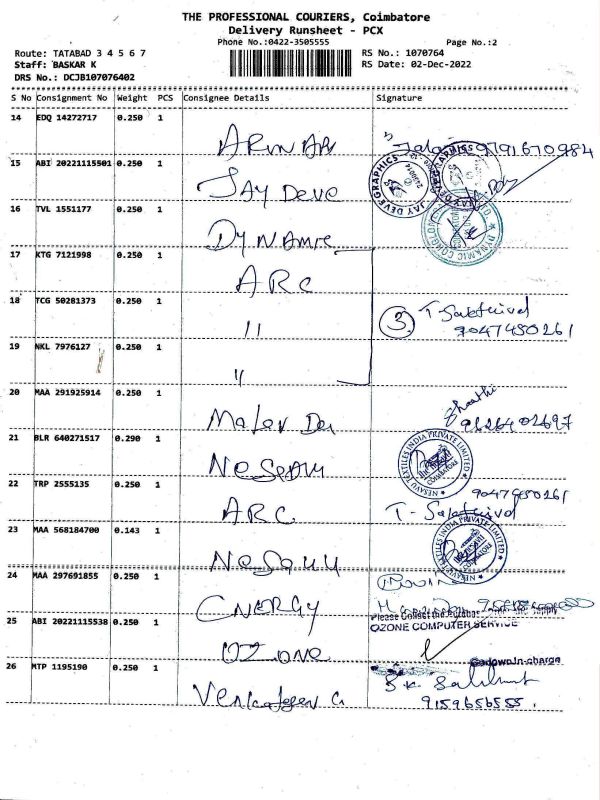 THE PROFESSIONAL COURIERS, Coimbatore
Delivery Runsheet - PCX
Phone No.:0422-3505555 Page No.:2
Route: TATABAD 3 4 5 6 7 RS No.: 1070764
Staff: BASKAR K RS Date: 02-Dec-2022
DRS No.: DCJB107076402
S No Consignment No Weight PCS Consignee Details Signature
14 EDQ 14272717 0.250 1
9791670984
15 ABI 20221115501 0.250 1 JAY DEVE
JAY DEVE GRAPHICS
16 TVL 1551177 0.250 1
DYNAMIC
17 KTG 7121998 0.250 1 ARC
18 TCG 50281373 0.250 1 11
3. T. Sakthivel
9047450261
19 NKL 7976127 0.250 1 11
20 MAA 291925914 0.250 1
21 BLR 640271517 0.290 1
NESAVU TEXTILES INDIA PRIVATE LIMITED
COIMBATORE
22 TRP 2555135 0.250 1 ARC
9047450261
T. Sakthivel
23 MAA 568184700 0.143 1
NESAVU TEXTILES INDIA PRIVATE LIMITED
24 MAA 297691855 0.250 1 ENERGY
Please Collect the
25 ABI 20221115538 0.250 1 OZONE
OZONE COMPUTER SERVICE
26 MTP 1195190 0.250 1
9159656555